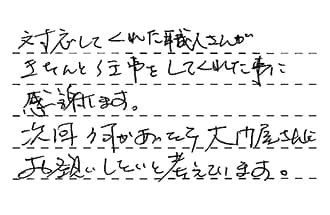 対応してくれた職人さんが
きちんと仕事をしてくれた事に
感謝してます。
次回何かあったら大門屋さんに
お願いしたいと考えています。